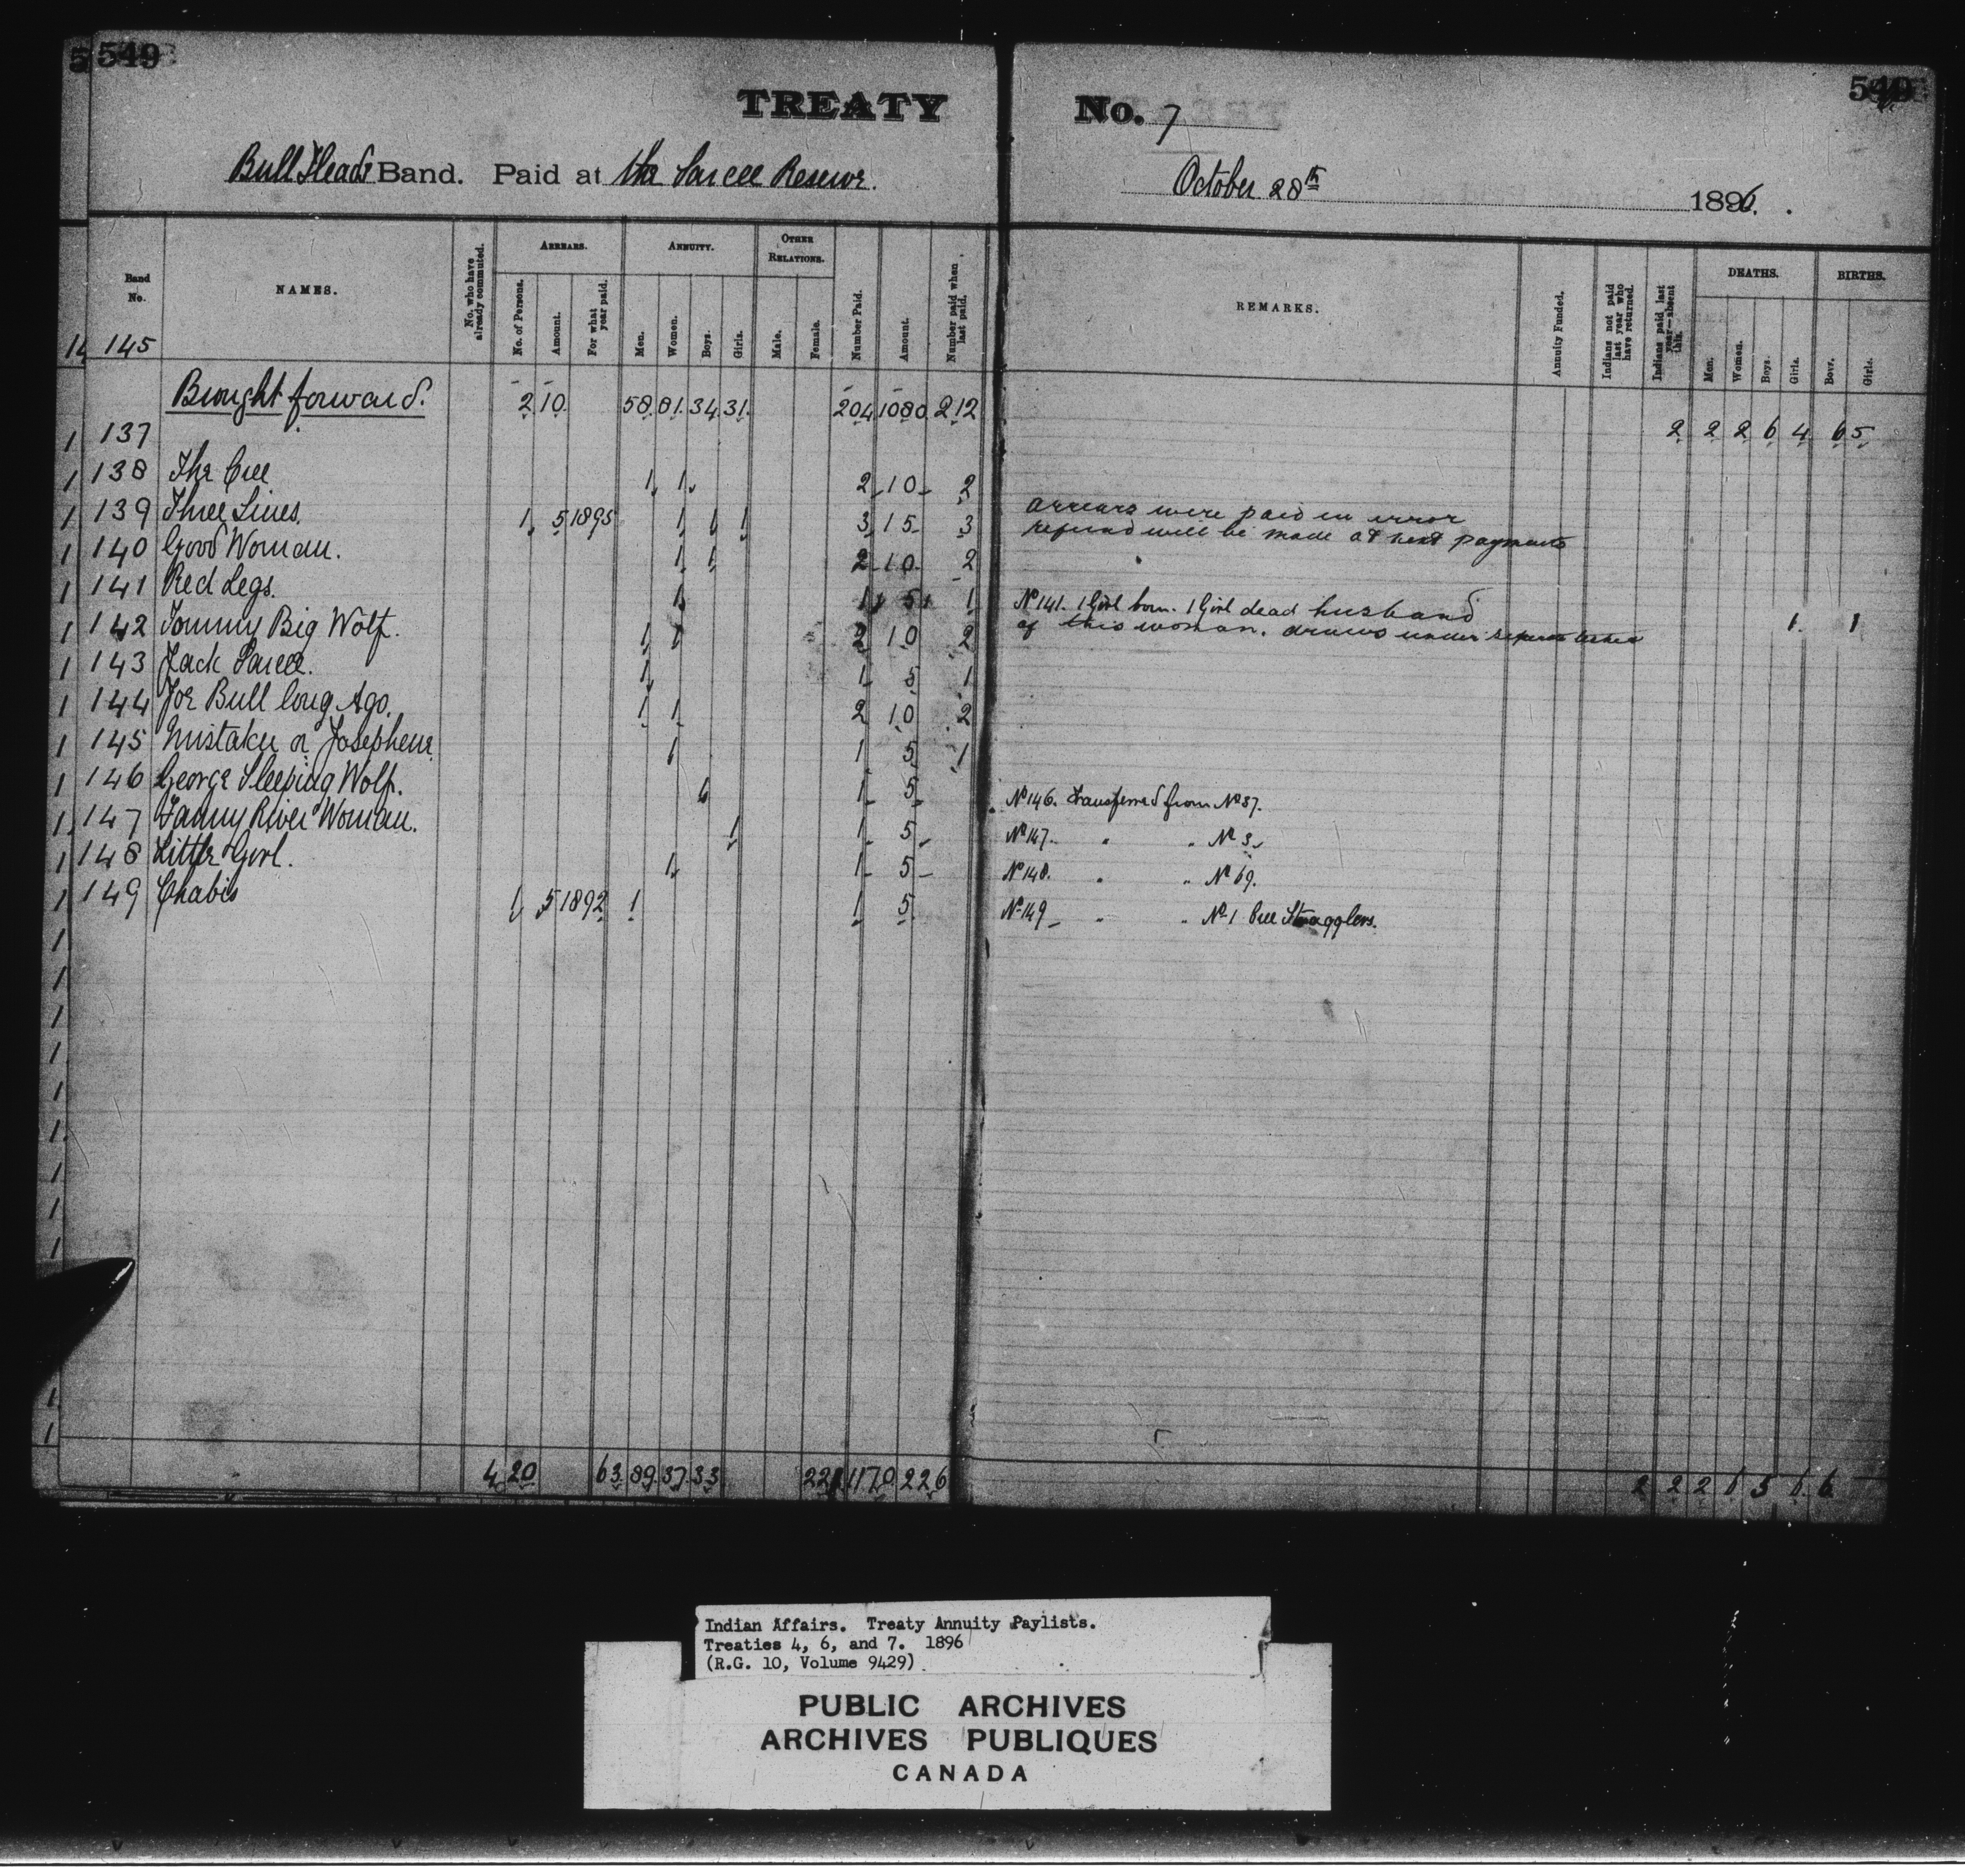 549
549
TREATY No. 7
Bull Heads Band. Paid at the Sarcee Reserve.
October 28th 1896.
Band No.
NAMES.
No. who have already commuted.
ARREARS.
No. of Persons.
Amount.
For what year paid.
ANNUITY.
Men.
Women.
Boys.
Girls.
OTHER RELATIONS.
Male.
Female.
Number Paid.
Amount.
Number paid when last paid.
REMARKS.
Annuity Funded.
Indians not paid last year who have returned.
Indians paid last year—absent this.
DEATHS.
Men.
Women.
Boys.
Girls.
BIRTHS.
Boys.
Girls.
145
Brought forward. 2 10. 58. 81. 34. 31. 204 1080 212 2 2 2 6 4 6 5
137
138 The Cree 1 1 2 10 2
139 Three Lines. 1 5 1895 1 1 1 3 15 3 arrears were paid in error
refund will be made at next payments
140 Good Woman. 1 1 2 10 2
141 Red Legs. 1 1 5 1 No 141. 1 Girl born. 1 Girl dead husband
of this woman. draws under 1 1
142 Tommy Big Wolf. 1 1 2 10 2
143 Jack Sarcee. 1 1 5 1
144 Joe Bull long Ago. 1 1 2 10 2
145 Mistaku or Josephene 1 1 5 1
146 George Sleeping Wolf. 1 1 5 No 146. Transferred from No 37.
147 Fanny River Woman. 1 1 5 No 147. " " No 3.
148 Little Girl. 1 1 5 No 148. " " No 69.
149 Chabis 1 5 1892 1 1 5 No 149 " " No 1 Cree Stragglers.
4 20 63 89 37 33 221 1170 226 2 2 2 6 5 6 6
Indian Affairs. Treaty Annuity Paylists.
Treaties 4, 6, and 7. 1896
(R.G. 10, Volume 9429)
PUBLIC ARCHIVES
ARCHIVES PUBLIQUES
CANADA